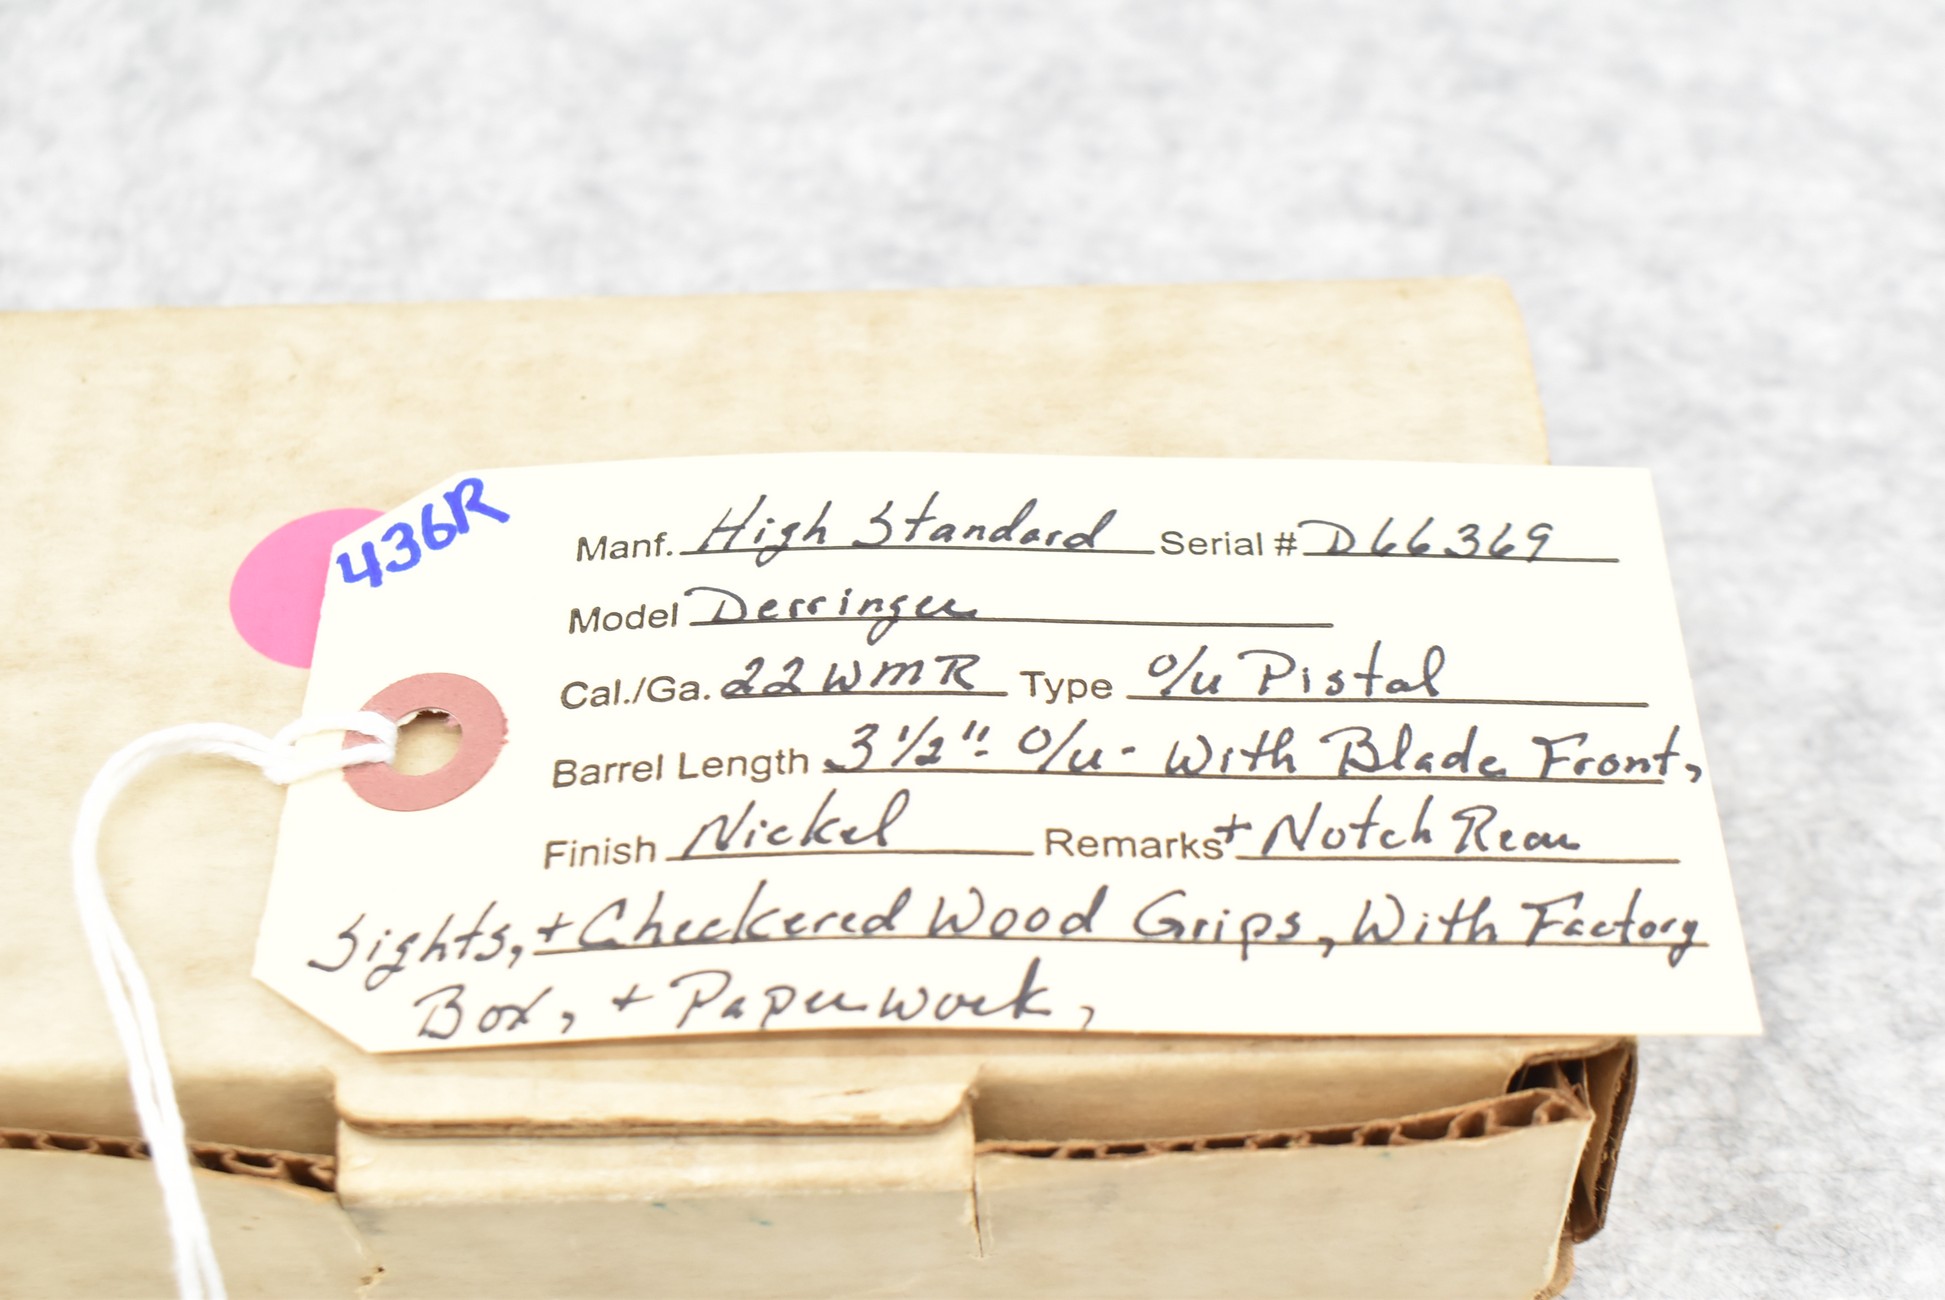 436R
Manf. High Standard Serial # D66369
Model Derringer
Cal./Ga. 22 WMR Type O/U Pistol
Barrel Length 3 1/2"- O/U - With Blade Front,
Finish Nickel Remarks + Notch Rear
Sights, + Checkered Wood Grips, With Factory
Box, + Paperwork,